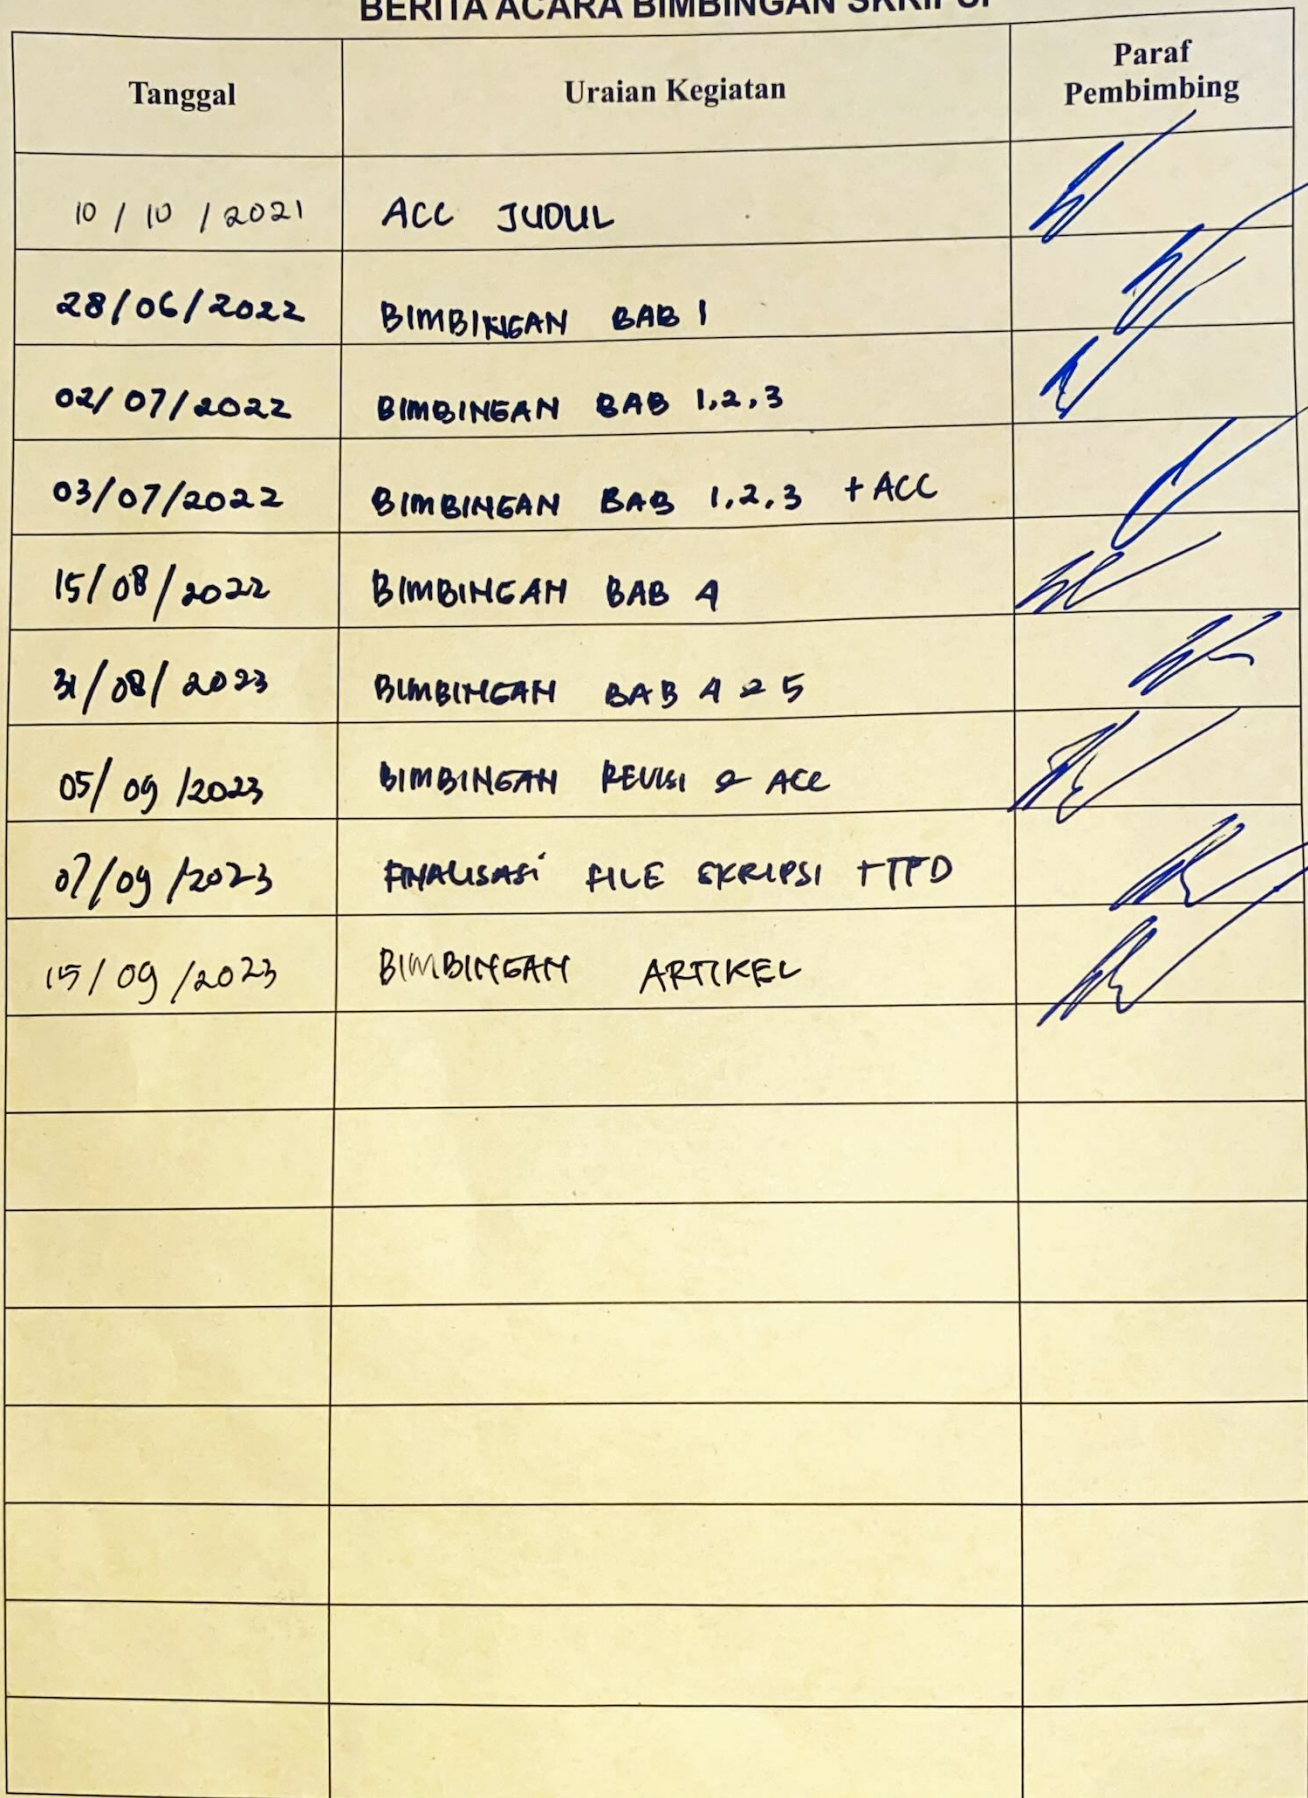 BERITA ACARA BIMBINGAN SKRIPSI
Tanggal Uraian Kegiatan Paraf Pembimbing
10/10/2021 ACC JUDUL
28/06/2022 BIMBINGAN BAB 1
02/07/2022 BIMBINGAN BAB 1,2,3
03/07/2022 BIMBINGAN BAB 1,2,3 + ACC
15/08/2022 BIMBINGAN BAB 4
31/08/2023 BIMBINGAN BAB 4 & 5
05/09/2023 BIMBINGAN REVISI & ACC
07/09/2023 FINALISASI FILE SKRIPSI + TTD
15/09/2023 BIMBINGAN ARTIKEL